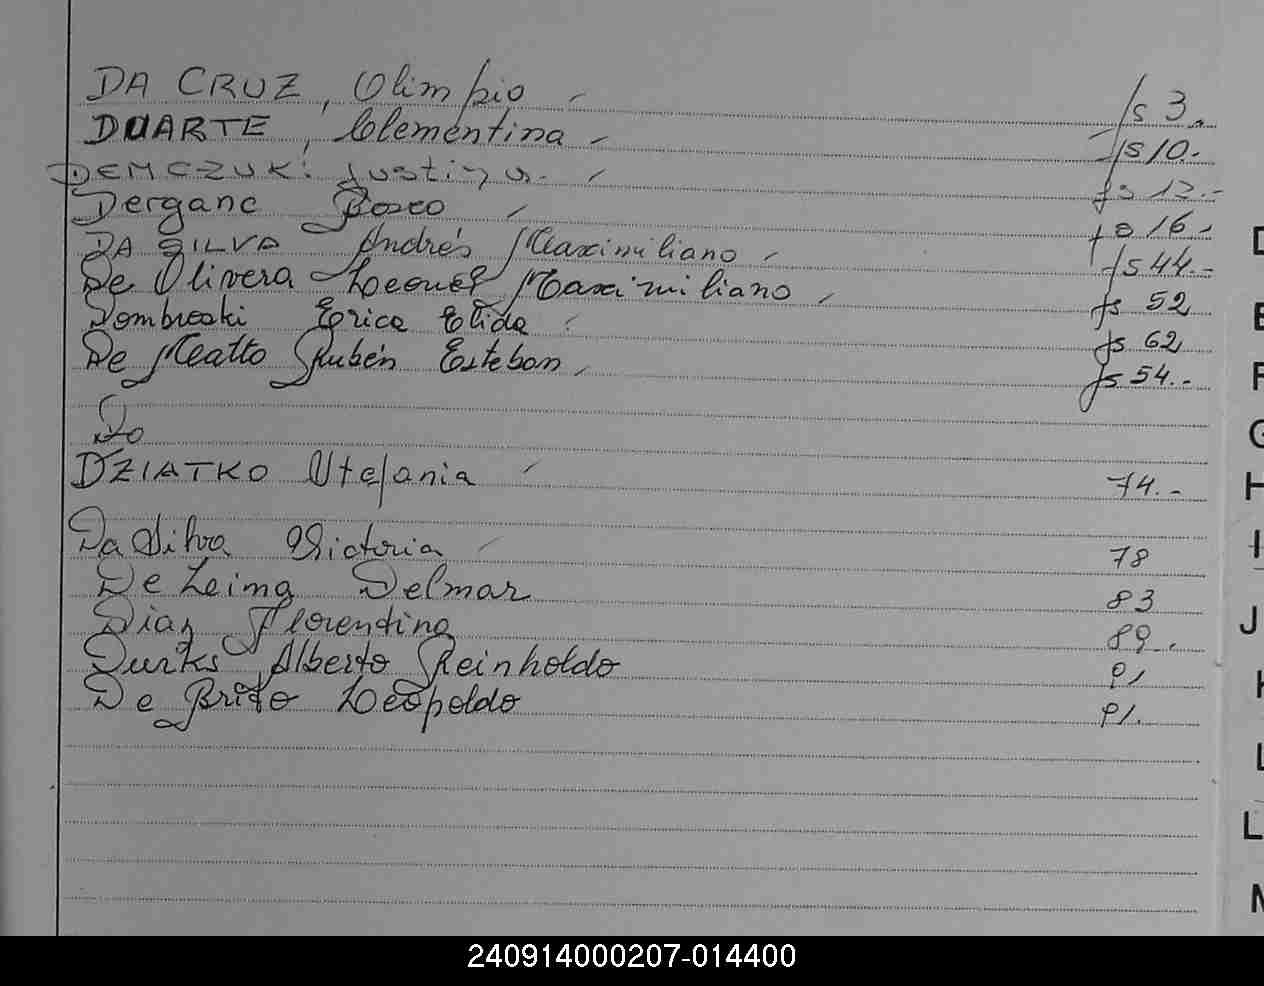 DA CRUZ, Olimpio fs 3.
DUARTE, Clementina fs 10.-
DEMCZUK: Justina. fs 12.-
Dergane Bosco fs 16.-
DA SILVA Andrés Maximiliano fs 44.-
De Olivera Leonel Maximiliano fs 52
Dombroski Erica Elida fs 62
De Matto Rubén Esteban fs 54.-
Do
DZIATKO Stefania 74.-
Da Silva Victoria 78
De Leima Delmar 83
Diaz Florentino 89.
Durks Alberto Reinholdo 91
De Brito Leopoldo 91.
D
E
F
G
H
I
J
K
L
L
M
240914000207-014400